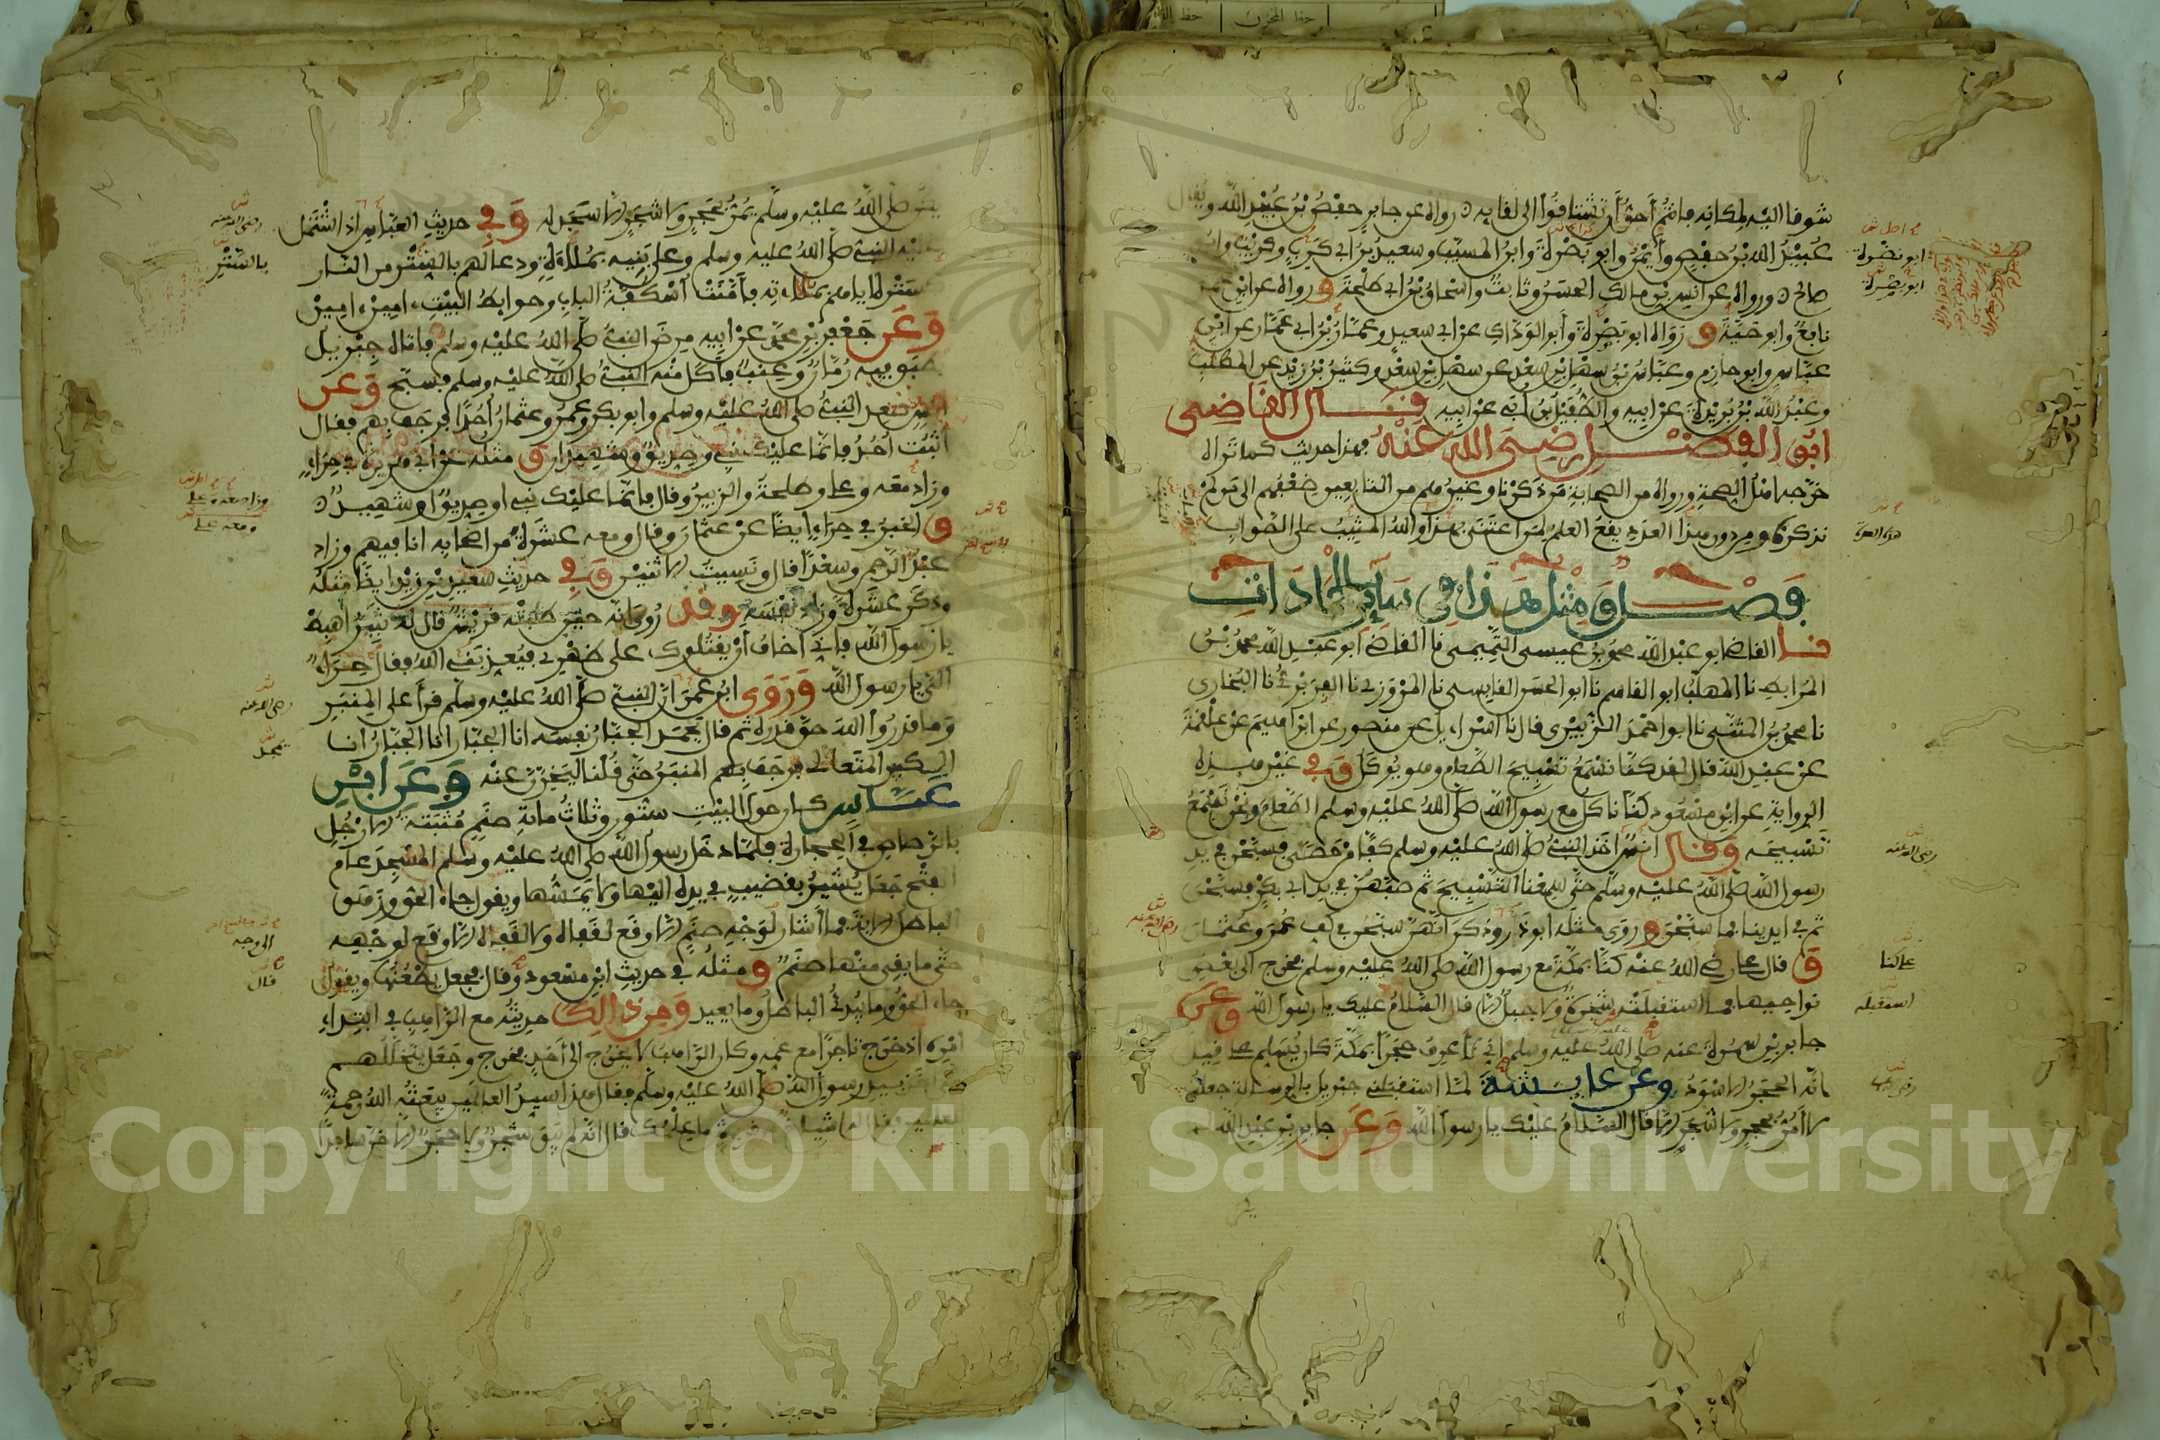 شوقا اليه لمكانه فانتم احق ان تشتاقوا الى لقايه رواه عن جابر حفص بن عبيد الله ويقال
عبيد الله بن حفص وايمن وابو نضرة وابن المسيب وسعيد بن ابي كرب وكريب وابو
صالح ورواه عن انس بن مالك الحسن وثابت واسحاق بن ابي طلحة ورواه عن ابن عمر
نافع وابو حية ورواه ابو نضرة وابو الوداك عن ابي سعيد وعمار بن ابي عمار عن ابن
عباس وابو حازم وعباس بن سهل بن سعد عن سهل بن سعد وكثير بن زيد عن المطلب
وعبد الله بن بريدة عن ابيه والطفيل بن ابي عن ابيه قال القاضي
ابو الفضل رضي الله عنه فهذا حديث كما تراه
خرجه اهل الصحة ورواه من الصحابة من ذكرنا وغيرهم من التابعين ضعفهم الى من لم
نذكره ومن دون هذا العدد يقع العلم لمن اعتنى بهذا والله المثبت على الصواب
فصل ومثل هذا في ساير الجمادات
نا القاضي ابو عبد الله محمد بن عيسى التميمي نا القاضي ابو عبد الله محمد بن
المرابط نا المهلب ابو القاسم نا ابو الحسن القابسي نا المروزي نا الفربري نا البخاري
نا محمد بن المثنى نا ابو احمد الزبيري قال نا اسراءيل عن منصور عن ابراهيم عن علقمة
عن عبد الله قال لقد كنا نسمع تسبيح الطعام وهو يوكل وفي غير هذه
الرواية عن ابن مسعود كنا ناكل مع رسول الله صلى الله عليه وسلم الطعام ونحن نسمع
تسبيحه وقال انس اخذ النبي صلى الله عليه وسلم كفا من حصى فسبحن في يد
رسول الله صلى الله عليه وسلم حتى سمعنا التسبيح ثم صبهن في يد ابي بكر فسبحن
ثم في ايدينا فما سبحن وروى مثله ابو ذر وذكر انهن سبحن في كف عمر وعثمان
وقال علي رضي الله عنه كنا بمكة مع رسول الله صلى الله عليه وسلم فخرج الى بعض
نواحيها فما استقبله شجرة ولا جبل الا قال السلام عليك يا رسول الله وعن
جابر بن سمرة عنه صلى الله عليه وسلم اني لاعرف حجرا بمكة كان يسلم علي قيل
انه الحجر الاسود وعن عايشة لما استقبلني جبريل بالرسالة جعلت
لا امر بحجر ولا شجر الا قال السلام عليك يا رسول الله وعن جابر بن عبد الله لم
ابو نضرة
ابو بصرة
هذه العدة
رضي الله عنه
علي كنا
استقبله
رضي الله عنها
صلى الله عليه وسلم يمر بحجر ولا شجر الا سجد له وفي حديث العباس اذ اشتمل
عليه النبي صلى الله عليه وسلم وعلى بنيه بملاءة ودعا لهم بالستر من النار
كستره اياهم بملاءته فامنت اسكفة الباب وحوايط البيت امين امين
وعن جعفر بن محمد عن ابيه مرض النبي صلى الله عليه وسلم فاتاه جبريل
بطبق فيه رمان وعنب فاكل منه النبي صلى الله عليه وسلم فسبح وعن
انس صعد النبي صلى الله عليه وسلم وابو بكر وعمر وعثمان احدا فرجف بهم فقال
اثبت احد فانما عليك نبي وصديق وشهيدان ومثله عن ابي هريرة في حراء
وزاد معه وعلي وطلحة والزبير وقال فانما عليك نبي او صديق او شهيد
والخبر في حراء ايضا عن عثمان وقال ومعه عشرة من اصحابه انا فيهم وزاد
عبد الرحمن وسعدا قال ونسيت الاثنين وفي حديث سعيد بن زيد ايضا مثله
وذكر عشرة وزاد نفسه وقد روي انه حين طلبته قريش قال له ثبير اهبط
يا رسول الله فاني اخاف ان يقتلوك على ظهري فيعذبني الله وقال حراء
الي يا رسول الله وروى ابن عمر ان النبي صلى الله عليه وسلم قرأ على المنبر
وما قدروا الله حق قدره ثم قال يمجد الجبار نفسه انا الجبار انا الجبار انا
الكبير المتعالي فرجف بهم المنبر حتى قلنا ليخرن عنه وعن ابن
عباس كان حول البيت ستون وثلاث ماية صنم مثبتة الارجل
بالرصاص في الحجارة فلما دخل رسول الله صلى الله عليه وسلم المسجد عام
الفتح جعل يشير بقضيب في يده اليها ولا يمسها ويقول جاء الحق وزهق
الباطل الاية فما اشار لوجه صنم الا وقع لقفاه ولا لقفاه الا وقع لوجهه
حتى ما بقي منها صنم ومثله في حديث ابن مسعود وقال فجعل يطعنها ويقول
جاء الحق وما يبدئ الباطل وما يعيد ومن ذلك حديثه مع الراهب في ابتداء
امره اذ خرج تاجرا مع عمه وكان الراهب لا يخرج الى احد فخرج وجعل يتخللهم
حتى اخذ بيد رسول الله صلى الله عليه وسلم فقال هذا سيد العالمين يبعثه الله رحمة
للعالمين فقال له اشياخ من قريش ما علمك فقال انه لم يبق شجر ولا حجر الا خر ساجدا
رضي الله عنه
بالستر
وزاد معه وعلي
ومعه علي
رضي الله عنه
يمجد
الى وجهه
قال
Copyright © King Saud University